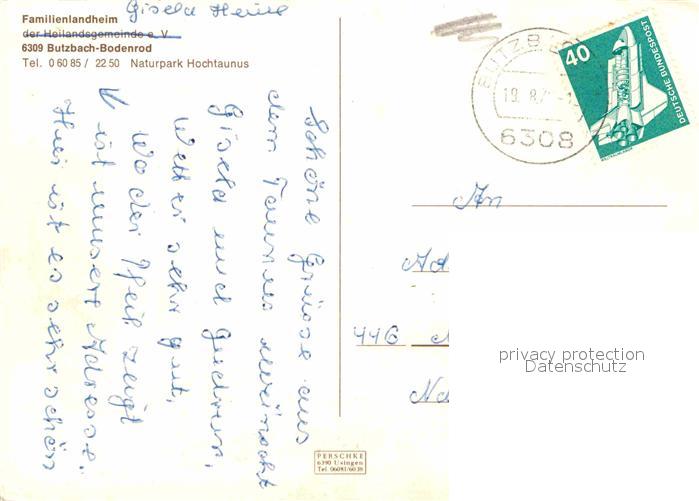 Gisela
Familienlandheim
der Heilandsgemeinde e. V.
6309 Butzbach-Bodenrod
Tel. 0 60 85 / 22 50 Naturpark Hochtaunus
Schöne Grüsse aus
dem Taunus wünscht
Gisela und
Wetter sehr gut,
Wo der Pfeil zeigt
ist unsere Adresse.
Hier ist es sehr schön
BUTZB
19. 8.7
6308
40
DEUTSCHE BUNDESPOST
An
446
privacy protection
Datenschutz
PERSCHKE
6390 Usingen
Tel. 06081/6039